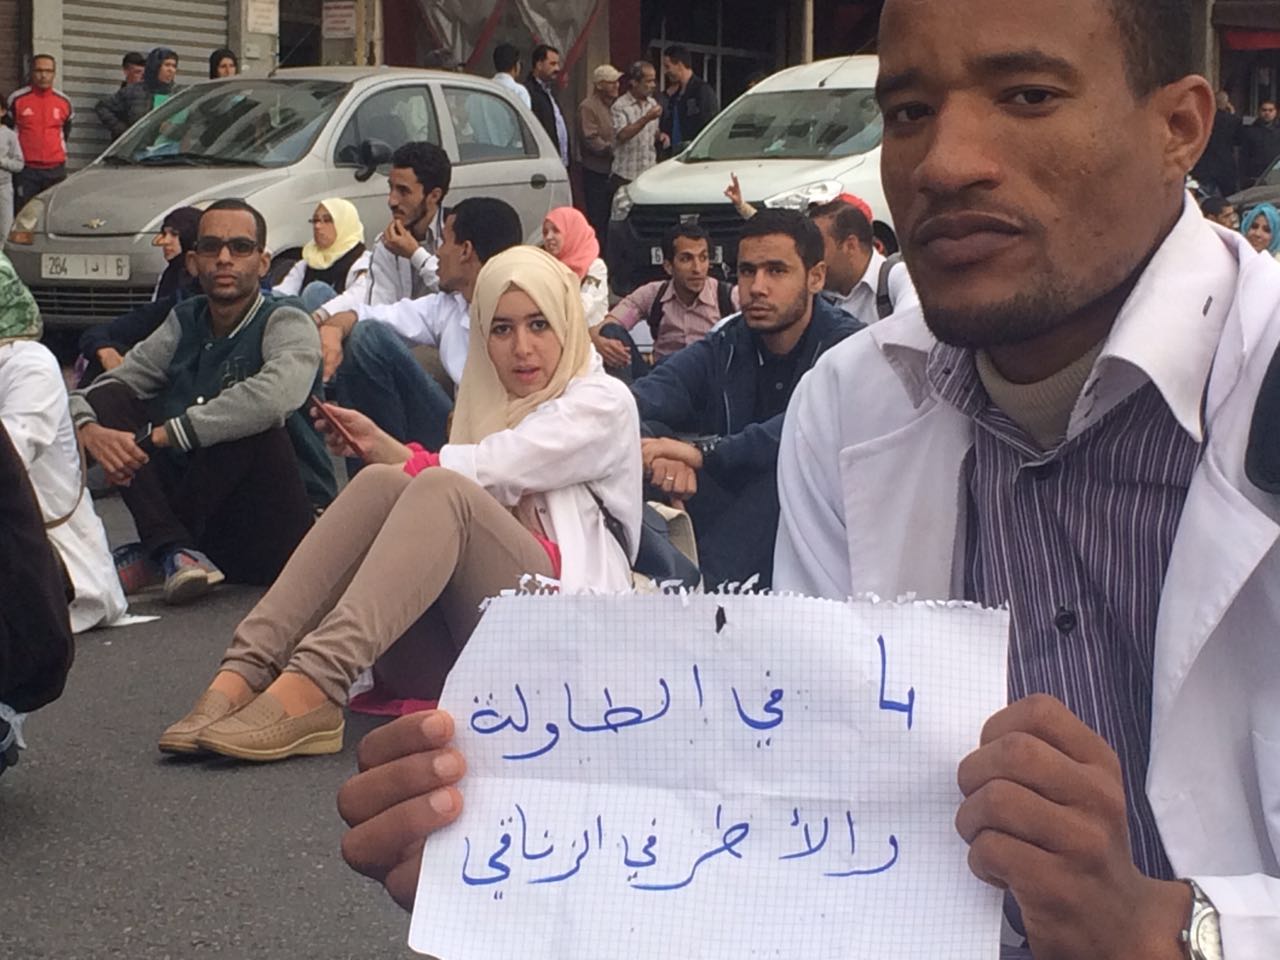 يا في الطاولة
والأ طر في الزناقي
284 | د | 6